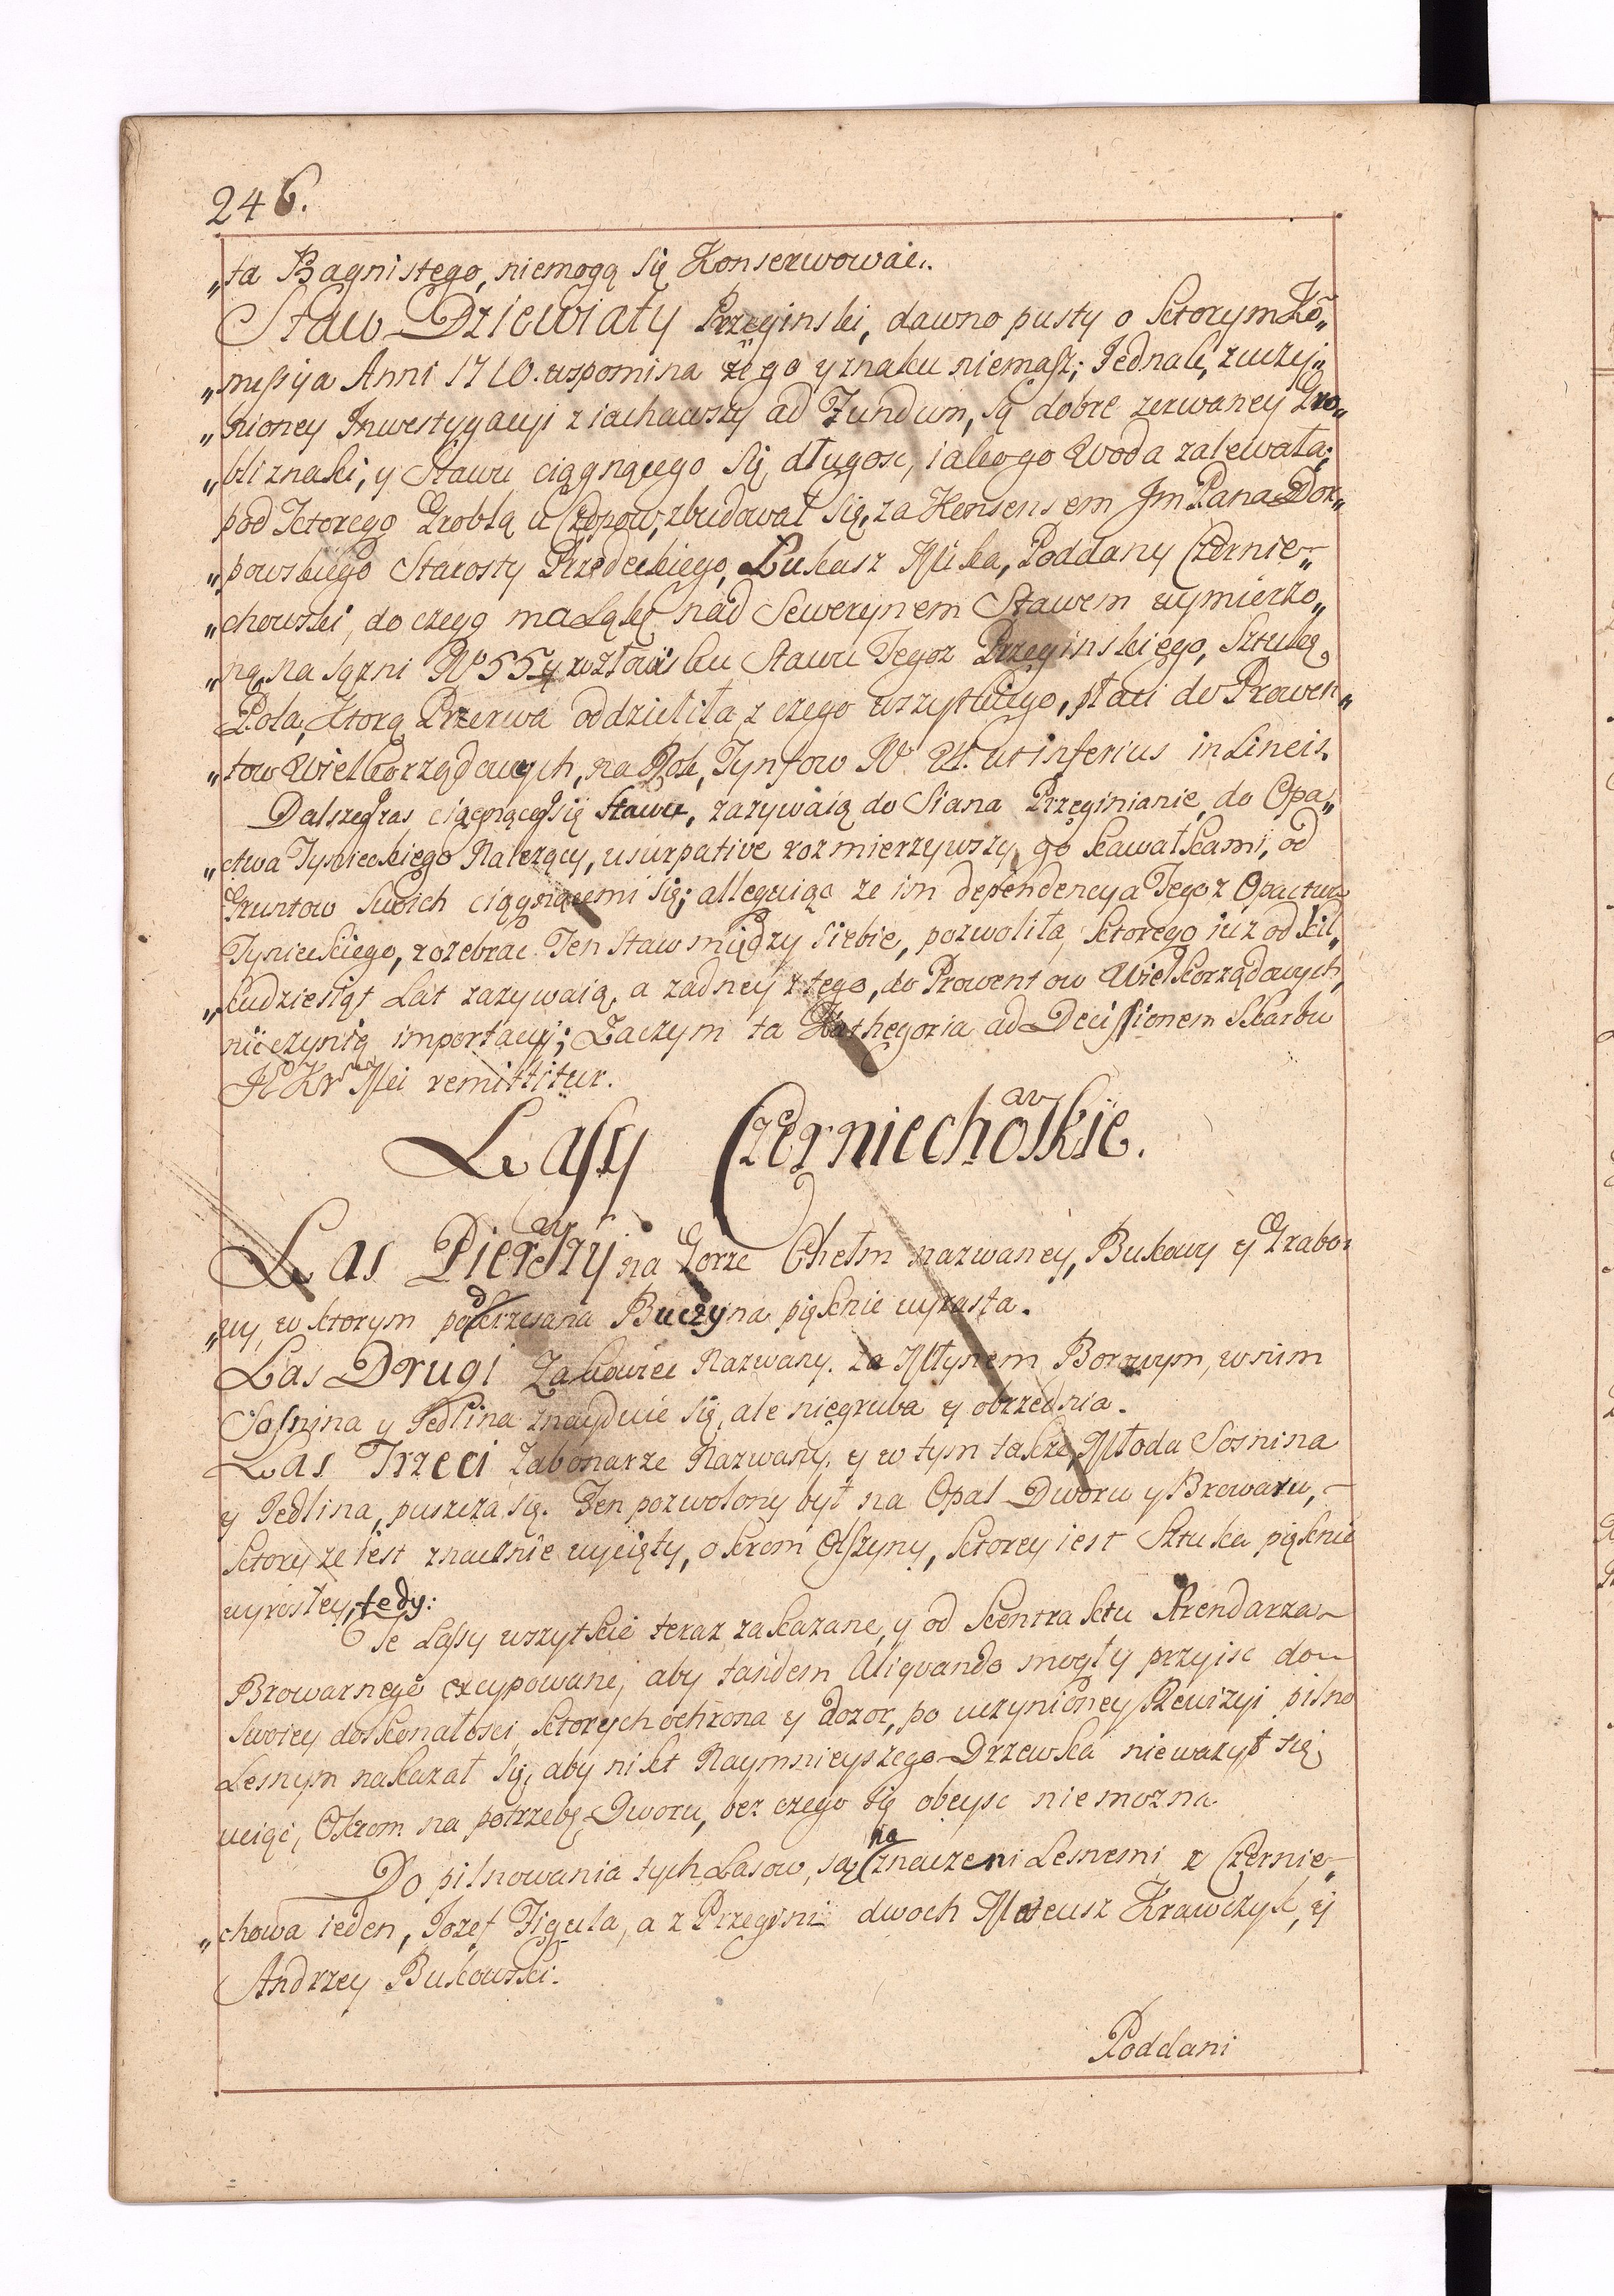 246.
„ta Bagnistego, niemogą się Konserwowac„.
Staw Dziewiąty Przeginski, dawno pusty o ktorym Ko„
„missya Anni 1710. wspomina że go y znaku niemasz; Jednak, z uczy„
„nioney Inwestygacyi ziachawszy ad Fundum, są dobre zerwaney Gro„
„bli znaki, y Stawu ciągnącego się długosc, iak go Woda zalewała;
pod ktorego Groblą u Czopow, zbudował się, za Konsensem Jm Pana Dor„
„powskiego Starosty Przedeckiego, Łukasz Mika, Poddany Czernie„
„chowski, do czego ma Łąkę nad Sewerynem Stawem wymierzo„
„ną, na sązni No 55 y w Stawisku Stawu Tegoz Przeginskiego, Sztukę
Pola, Ktorą Przerwa oddzieliła, z czego wszystkiego, płaci do Prowen„
„tow Wielkorządowych, na Rok, Tynfow No ut inferius in Lineis.
Dalszego zas ciągnącego się Stawu, zazywaią do Siana Przeginianie, do Opa„
„ctwa Tynieckiego Nalezący, usurpative rozmierzywszy go kawałkami, od
Gruntow swoich ciągnącemi się; alleguiąc ze im dependencya Tegoz Opactwa
Tynieckiego, rozebrac Ten Staw między siebie, pozwoliła, ktorego iuz od kil„
„kudziesiąt Lat zazywaią, a zadney z tego, do Prowentow Wielkorządowych,
nie czynią importacyi; Zaczym ta Kathegoria ad Decissionem Skarbu
JKr Mci remittitur.
Lassy Czerniechowskie.
Las Pierwszy na Gorze Chełm nazwaney, Bukowy y Grabo„
„wy, w ktorym podkrzesana Buczyna pięknie wyrasta.
Las Drugi Zakowiec Nazwany. za Młynem Borowym, w nim
Sosnina y Jedlina znayduie się, ale niegruba y obrzednia.
Las Trzeci Zabonarze Nazwany. y w tym takze, Młoda Sosnina
y Jedlina, puszcza się. Ten pozwolony był na Opał Dworu y Browaru,
ktory ze iest znacznie wycięty, okrom Olszyny, ktorey iest Sztuka pięknie
wyrosłey, tedy:
Te Lassy wszytkie teraz zakazane, y od kontraktu Arendarza
Browarnego excypowane, aby tandem Aliquando mogły przyisc do
swoiey doskonałosci, ktorych ochrona y dozor, po uczynioney Rewizyi pilno
Lesnym nakazał się, aby nikt Naymnieyszego Drzewka niewazył się
uciąc, Okrom na potrzebę Dworu, bez czego się obeysc niemozna.
Do pilnowania tych Lasow, są naznaczeni Lesnemi z Czernie„
„chowa ieden, Jozef Figula, a z Przegini dwoch Mateusz Krawczyk, y
Andrzey Bukowski.
Poddani